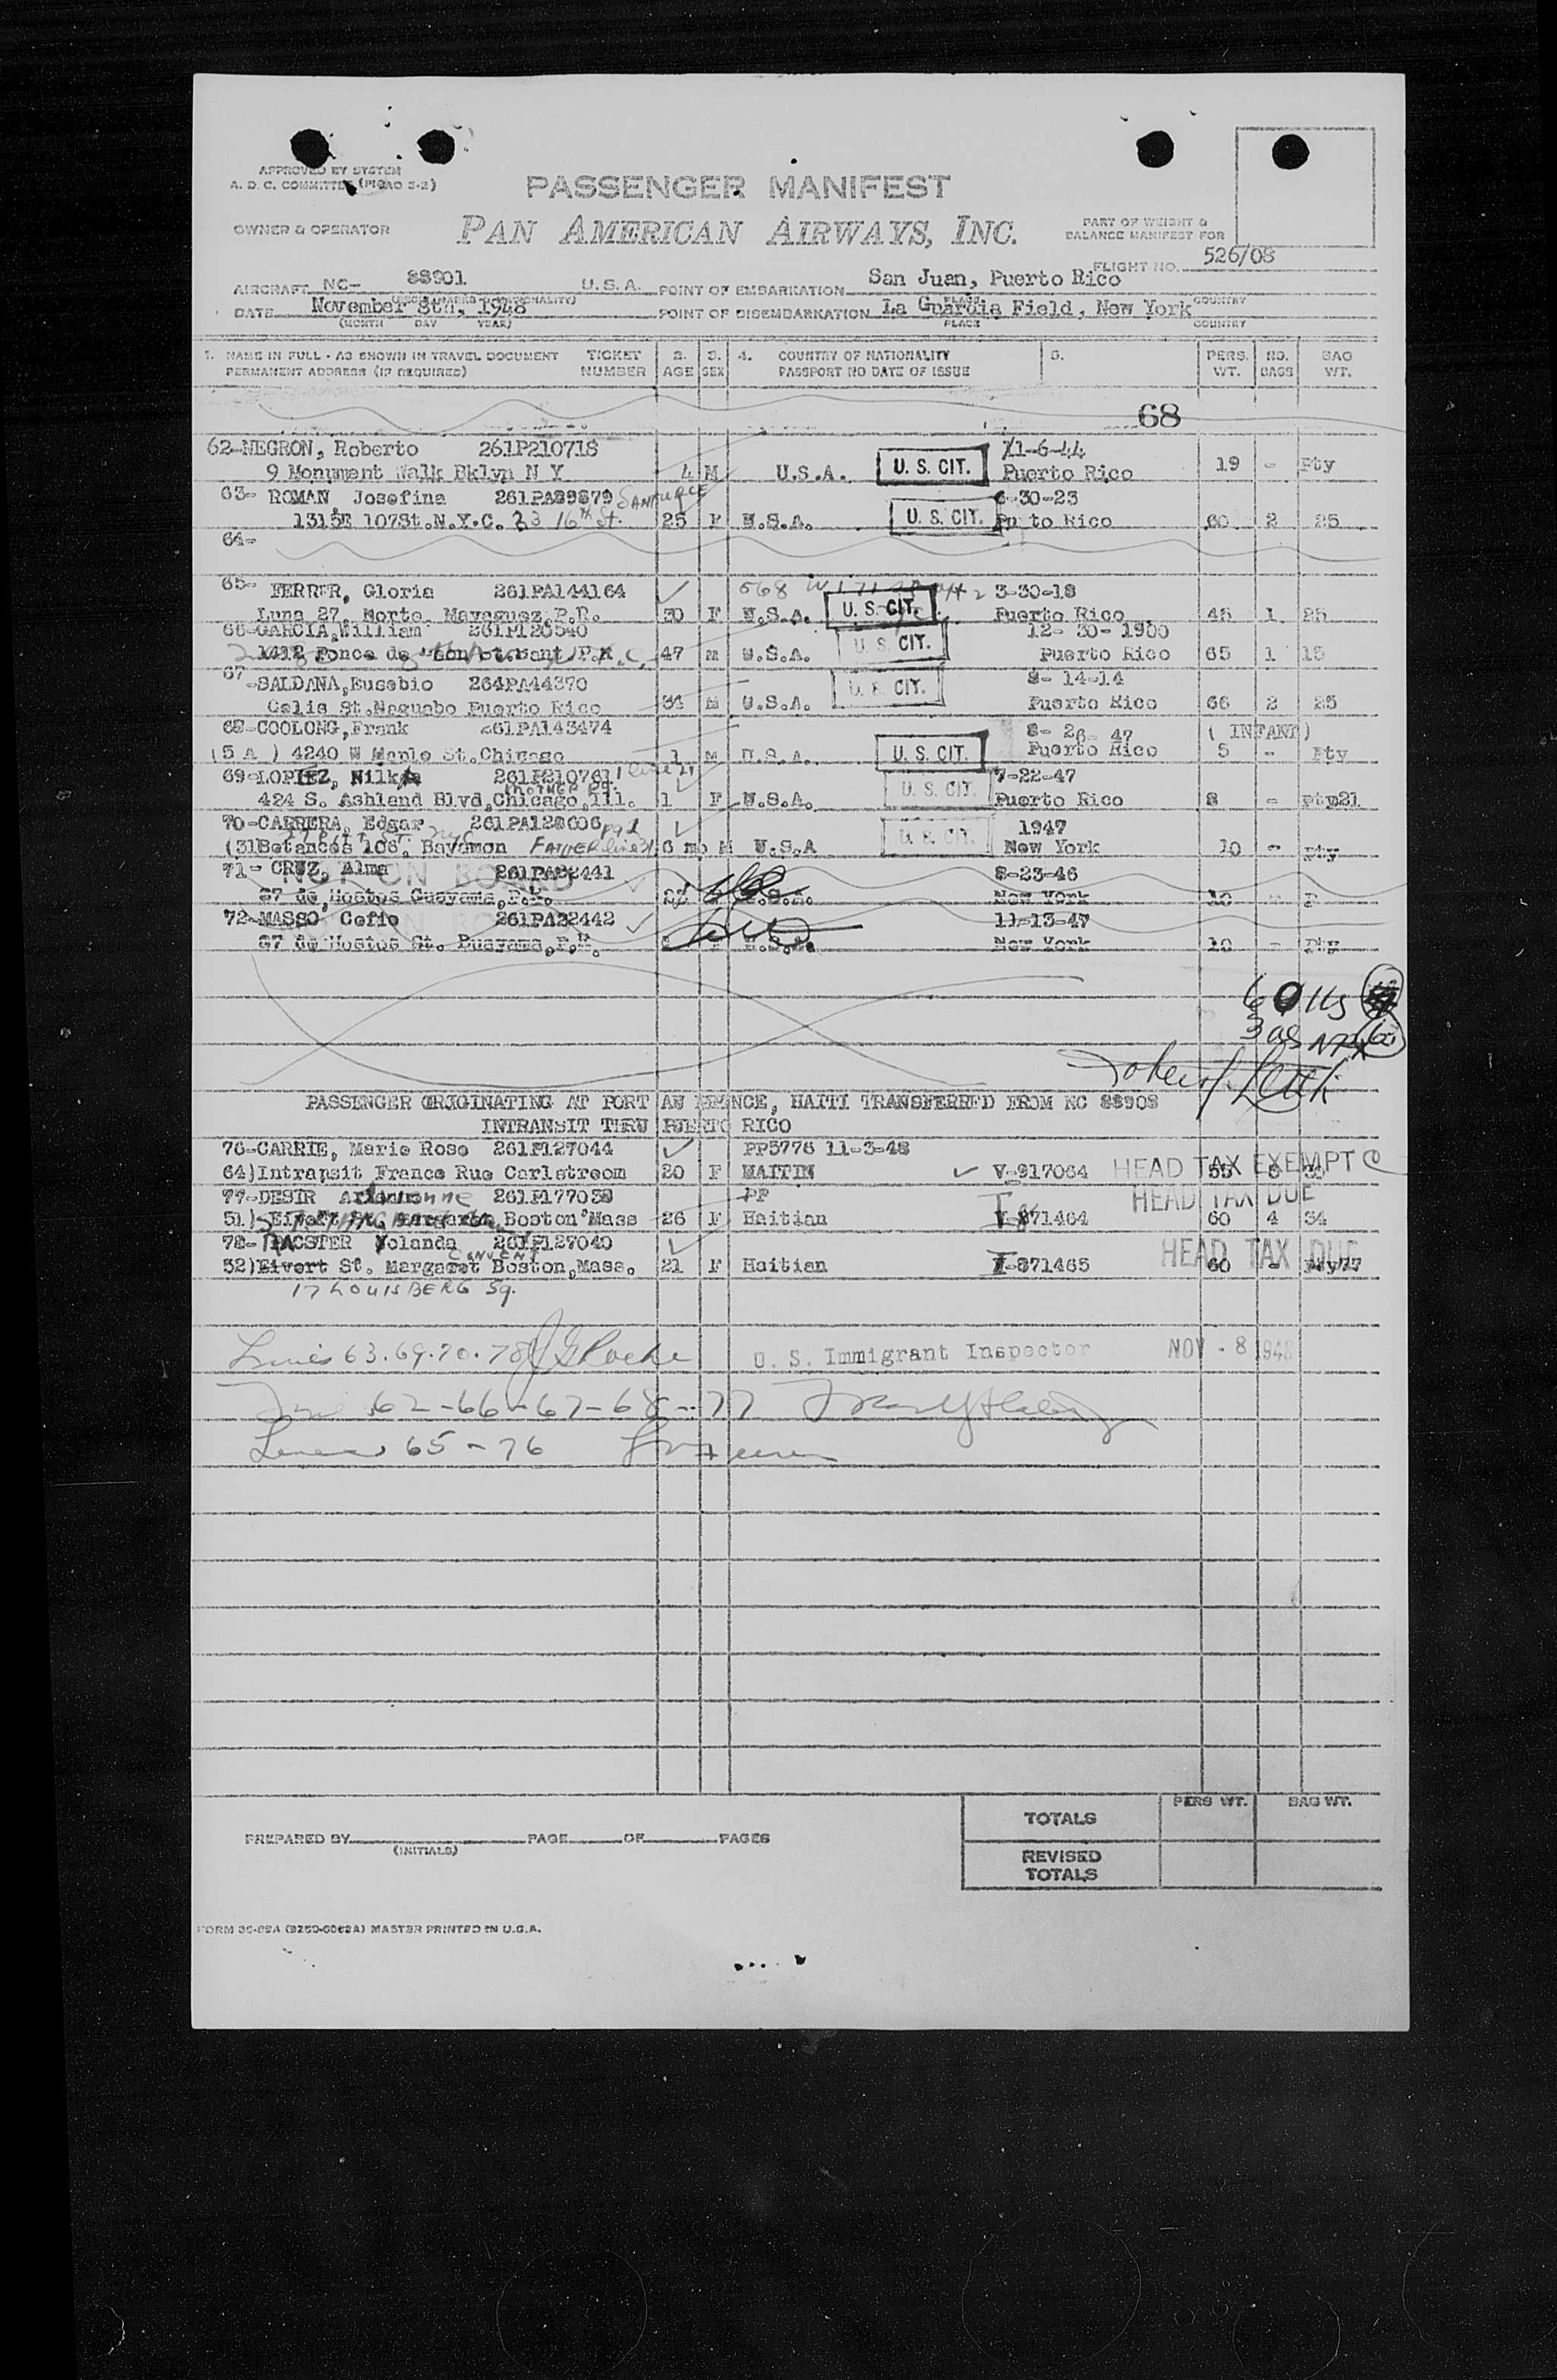 APPROVED BY SYSTEM
A. D. C. COMMITTEE (PICAO 3-2)
PASSENGER MANIFEST
OWNER & OPERATOR
PAN AMERICAN AIRWAYS, INC.
PART OF WEIGHT &
BALANCE MANIFEST FOR
FLIGHT NO. 526/08
AIRCRAFT NC- 88901 U.S.A. POINT OF EMBARKATION San Juan, Puerto Rico
DATE November 8th, 1948 POINT OF DISEMBARKATION La Guardia Field, New York
(MONTH DAY YEAR) PLACE COUNTRY
1. NAME IN FULL - AS SHOWN IN TRAVEL DOCUMENT TICKET 2. 3. 4. COUNTRY OF NATIONALITY 5. PERS. NO. BAG
PERMANENT ADDRESS (IF REQUIRED) NUMBER AGE SEX PASSPORT NO DATE OF ISSUE WT. BAGS WT.
68
62-NEGRON, Roberto 261P210718 11-6-44
9 Monument Walk Bklyn N Y 4 M U.S.A. U. S. CIT. Puerto Rico 19 - Pty
63- ROMAN Josefina 261PA89879 SANTURCE 6-30-23
1315E 107St.N.Y.C. 33 16th St. 25 F U.S.A. U. S. CIT. Puerto Rico 60 2 25
64-
65- FERRER, Gloria 261PA144164 568 W 171 3-30-18
Luna 27, Norte, Mayaguez,P.R. 30 F U.S.A. U. S. CIT. Puerto Rico 45 1 25
66-GARCIA,William 261P128540 12- 30- 1900
1412 Ponce de Leon St.Sant P.R. 47 M U.S.A. U. S. CIT. Puerto Rico 65 1 15
67
-SALDANA,Eusebio 264PA44370 8- 14-14
Celis St.Naguabo Puerto Rico 34 M U.S.A. U. S. CIT. Puerto Rico 66 2 25
68-COOLONG,Frank 261PA143474 8- 26- 47 ( INFANT)
(5 A ) 4240 W Maple St.Chicago 1 M U.S.A. U. S. CIT. Puerto Rico 5 - Pty
69-LOPEZ, Nilka 261P210761 line 21 7-22-47
MOTHER pg.
424 S. Ashland Blvd,Chicago,Ill. 1 F U.S.A. U. S. CIT. Puerto Rico 8 - pty21
70-CABRERA, Edgar 261PA128606 pg 1 1947
(31)Betances 106, Bayamon FATHER line 31 6 mo M U.S.A U. S. CIT. New York 10 - pty
NOT ON BOARD
71- CRUZ, Alma 261PA22441 8-23-46
87 de Hostos Guayama,P.R. U.S.A. New York 10 - P
72-MASSO Cofio 261PA22442 11-13-47
87 de Hostos St. Puayama,P.R. U.S.A. New York 10 - Pty
PASSENGER ORIGINATING AT PORT AU PRINCE, HAITI TRANSFERRED FROM NC 88908
INTRANSIT THRU PUERTO RICO
76-CARRIE, Marie Rose 261P127044 PP5776 11-3-48
64)Intransit France Rue Carlstroom 20 F HAITIN V-917064 HEAD TAX EXEMPT 55 31
77-DESIR 261P177038 PP HEAD TAX DUE
51) Boston Mass 26 F Haitian 871464 60 4 34
78- Yolanda 261P127040
CONVENT
52)Eivert St. Margaret Boston,Mass. 21 F Haitian I-871465 HEAD TAX DUE 60 - Pty77
17 LOUISBERG Sq.
Lines 63.69.70.78 U. S. Immigrant Inspector NOV - 8 1948
62-66-67-68-77
Lines 65-76
TOTALS PERS WT. BAG WT.
PREPARED BY PAGE OF PAGES
(INITIALS)
REVISED
TOTALS
MASTER PRINTED IN U.S.A.